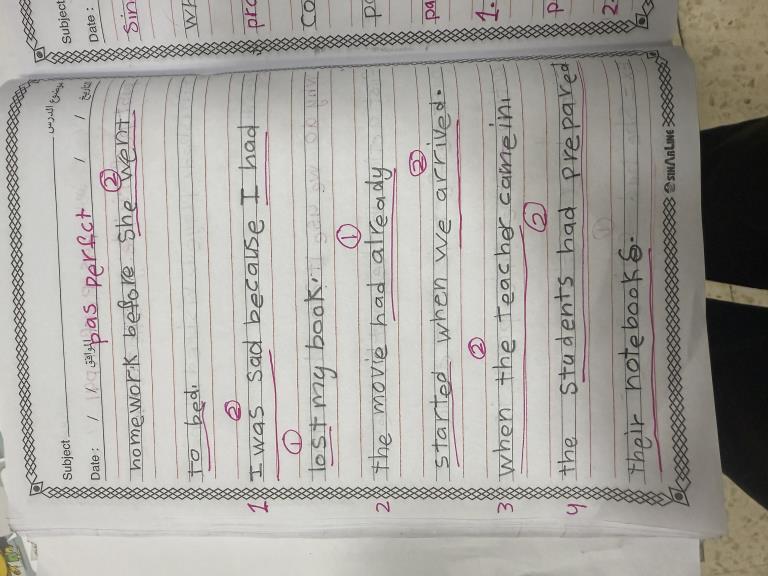 Subject
موضوع الدرس
Date : / / / التاريخ
pas perfect
homework before she went ②
to bed.
1. I was sad because I had ②
lost my book. ①
2 the movie had already ①
started when we arrived. ②
3 when the teacher came in ②
4 the students had prepared ②
their notebooks.
SINARLINE
Subject
Date :
Sin
Wh
pro
Co
po
pa
1.
P
2.